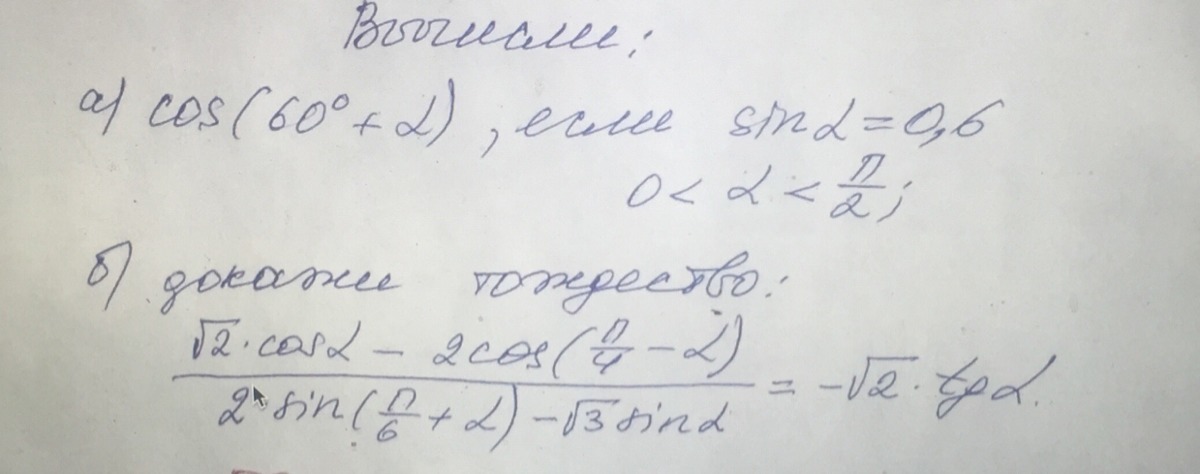 Вычисли:
а) cos(60° + α), если sin α = 0,6
0 < α < π/2;
б) докажи тождество:
(√2 · cos α − 2 cos(π/4 − α)) / (2 · sin(π/6 + α) − √3 sin α) = −√2 · tg α.